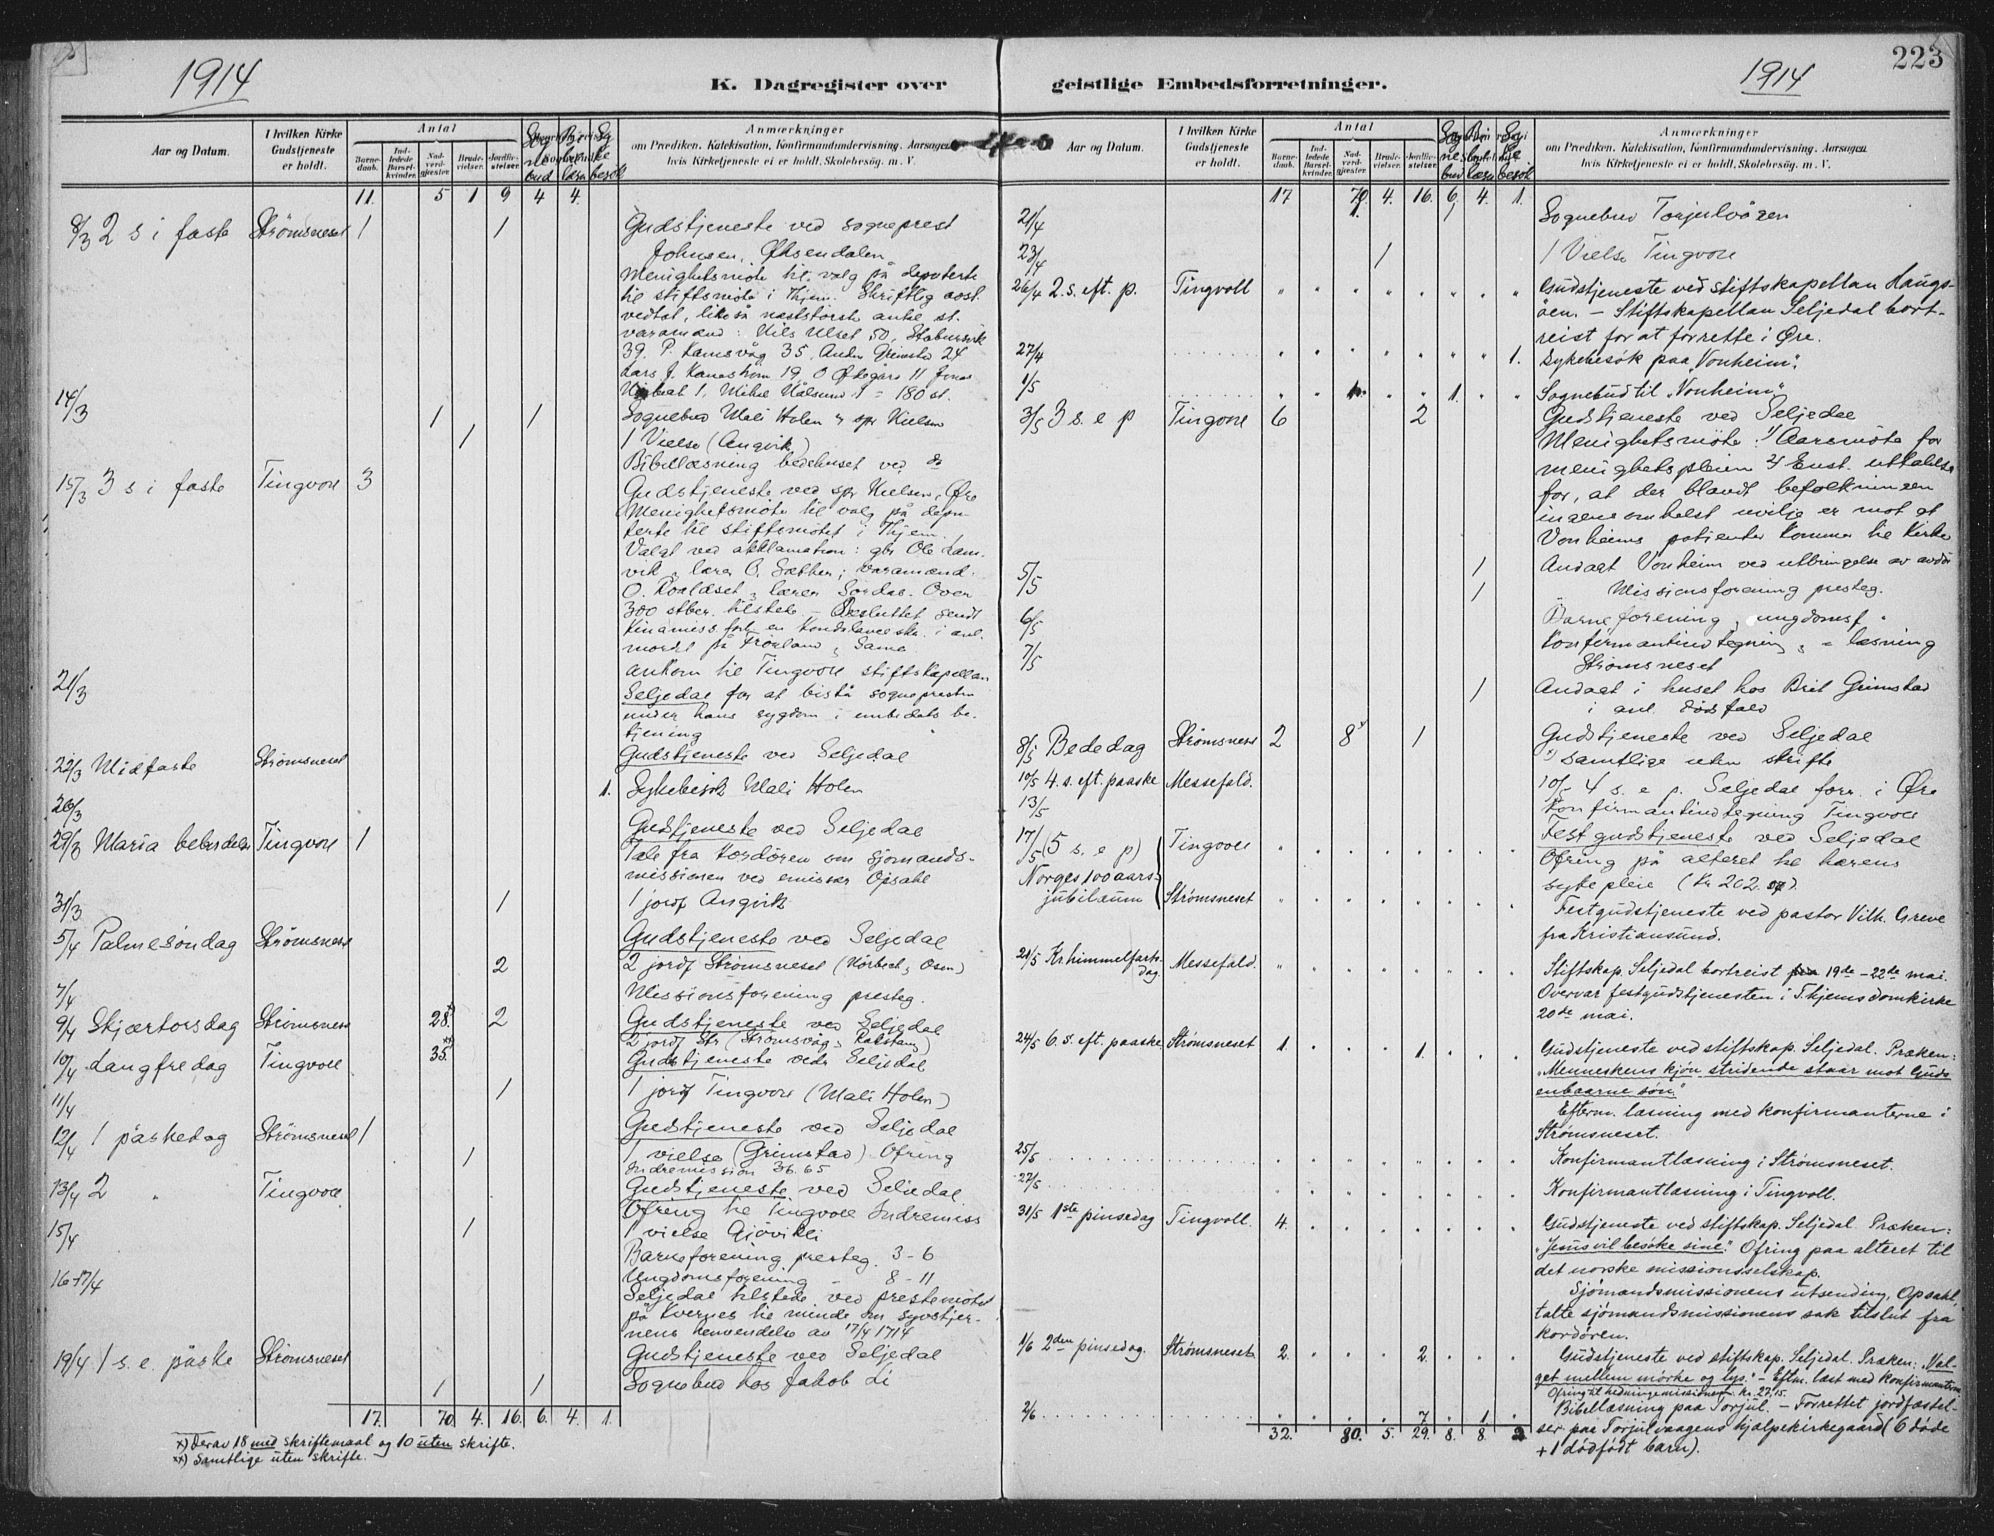 1914
K. Dagregister over
geistlige Embedsforretninger.
1914
223
Aar og Datum.
I hvilken Kirke Gudstjeneste er holdt.
Antal
Barnedaab.
Indledede Barselkvinder.
Nadverdgjæster.
Brudevielser.
Jordfæstelser.
Sognebud
Bibellæsn
Sykebesök
Anmærkninger
om Prædiken, Katekisation, Konfirmandundervisning, Aarsagen
hvis Kirketjeneste ei er holdt, Skolebesøg. m. V.
11. 5 1 9 4 4.
8/3 2 s i faste Strømsneset 1 1 Gudstjeneste ved sogneprest
Johnsen, Øksendalen
Menighetsmöte til valg på deputerte
til stiftsmöte i Thjem. Skriftlig
vedtat, likeså næststörste antal st.
varamænd: Nils Ulset 50,
39. P. Kamsvåg 35, 24
19 11
1, 1 = 180 st.
14/3 1 1 Sognebud Mali Holen v spr Nielsen
1 1 Vielse (Angvik)
Bibellæsning bedehuset ved do
15/3 3 s i faste Tingvoll 3 Gudstjeneste ved spr Nielsen, Øre
Menighetsmöte til valg på depu-
terte til stiftsmötet i Thjem.
Valgt ved akklamation: gbr Ole
vik, lærer O. Sæther; varamænd:
O. Roaldset, lærer Sördal. Over
300 stber. tilstede - Besluttet sendt
Kinamissforb. en Kondolanceskr. i anl.
mordet på Fröland, Sama
21/3 Ankom til Tingvoll stiftskapellan
Seljedal for at bistå sognepresten
under hans sygdom i embedets be-
tjening
22/3 Midfaste Strømsneset Gudstjeneste ved Seljedal
26/3 1. Sykebesök Mali Holen
29/3 Maria bebudelse Tingvoll 1 Gudstjeneste ved Seljedal
Tale fra Kordören om sjömands-
missionen ved emissær Opsahl
31/3 1 1 jordf Angvik
5/4 Palmesöndag Strømsnes Gudstjeneste ved Seljedal
2 2 jordf Strømsneset (Hörbech, Osen)
7/4 Missionsforening presteg.
9/4 Skjærtorsdag Strömsnes 28 x) 2 Gudstjeneste ved Seljedal
2 jordf Str (Strømsvåg,
10/4 Langfredag Tingvoll 35 xx) Gudstjeneste ved Seljedal
11/4 1 1 jordf Tingvoll (Mali Holen)
12/4 1 påskedag Strømsneset 1 Gudstjeneste ved Seljedal
1 1 vielse (Grimstad) Ofring
Indremission 36.65
13/4 2 " Tingvoll Gudstjeneste ved Seljedal
Ofring til Tingvoll Indremiss
15/4 1 1 vielse Gjövikli
Barneforening presteg. 3 - 6
Ungdomsforening - 8 - 11
16-17/4 Seljedal tilstede ved prestemötet
på Kvernes til minde om syvstjer-
nens henvendelse av 17/4 1714
19/4 1 s. e. påske Strömsneset Gudstjeneste ved Seljedal
1 1 Sognebud hos Jakob Li
17. 70 4. 16. 6. 4. 1.
x) Derav 18 med skriftemaal og 10 uten skrifte.
xx) Samtlige uten skrifte.
Aar og Datum.
I hvilken Kirke Gudstjeneste er holdt.
Antal
Barnedaab.
Indledede Barselkvinder.
Nadverdgjæster.
Brudevielser.
Jordfæstelser.
Anmærkninger
om Prædiken, Katekisation, Konfirmandundervisning, Aarsagen
hvis Kirketjeneste ei er holdt, Skolebesøg. m. V.
17 70 4. 16. 6. 4. 1.
21/4 1. 1 Sognebud Torjulvågen
23/4 1 1 Vielse Tingvoll
26/4 2. s. eft. p. Tingvoll Gudstjeneste ved stiftskapellan Haugs-
öen. - Stiftskapellan Seljedal bort-
reist for at forrette i Øre.
27/4 1. Sykebesök paa "Vonheim".
1/5 1. Sognebud til "Vonheim".
3/5 3 s. e p Tingvoll 6 2 Gudstjeneste ved Seljedal
Menighetsmöte: 1) Aarsmöte for
menighetspleien 2) Enst. uttalelse
for, at der blandt befolkningen
ingensomhelst uvilje er mot at
Vonheims patienter kommer til Kirke
5/5 1 Andagt Vonheim ved utbringelse av avdöd
1 Missionsforening presteg.
6/5 Barneforening, ungdomsf "
7/5 Konfirmantindtegning, - læsning
Strømsneset
1 Andagt i huset hos Brit Grimstad
i anl. dödsfald
8/5 Bededag Strømsnes 2 8 x 1 Gudstjeneste ved Seljedal
x) Samtlige uten skrifte
10/5 4. s. eft. paaske Messefald. 10/5 4 s. e p. Seljedal forr. i Øre
13/5 Konfirmantindtegning Tingvoll
17/5 (5 s. e p) Tingvoll Festgudstjeneste ved Seljedal
Norges 100 aars- Ofring på alteret til hærens
sykepleie (Kr 202.
jubilæum Strømsneset Festgudstjeneste ved pastor Vilh. Greve
fra Kristiansund.
21/5 Kr. himmelfarts-dag. Messefald. Stiftskap. Seljedal bortreist 19de - 22de mai.
Overvar festgudstjenesten i T.hjems domkirke
20de mai.
24/5 6. s. eft. paaske Strømsneset 1. 1. Gudstjeneste ved stiftskap. Seljedal. Præken:
"Menneskens kjön stridende staar mot Guds
enbaarne sön"
Efterm. læsning med konfirmanterne i
Strømsneset.
25/5 Konfirmantlæsning i Strømsneset.
27/5 Konfirmantlæsning i Tingvoll.
31/5 1ste pinsedag Tingvoll. 4. Gudstjeneste ved stiftskap. Seljedal. Præken:
"Jesus vil besöke sine". Ofring paa alteret til
det norske missionsselskap.
Sjömandsmissionens utsending, Opsahl,
talte sjömandsmissionens sak tilslut fra
kordören.
1/6 2den pinsedag. Strømsneset. 2. 2. Gudstjeneste ved stiftskap. Seljedal. Præken: "Val-
get mellem mörke og lys." - Eftm. læst med konfirmanterne
Ofring til hedningemissionen kr. 27,15.
2/6 7. 1. Bibellæsning paa Torjul. - Forrettet jordfæstel-
ser paa Torjulvaagens hjælpekirkegaard (6 döde
+ 1 dödfödt barn).
32. 80. 5. 29. 8. 8. 2